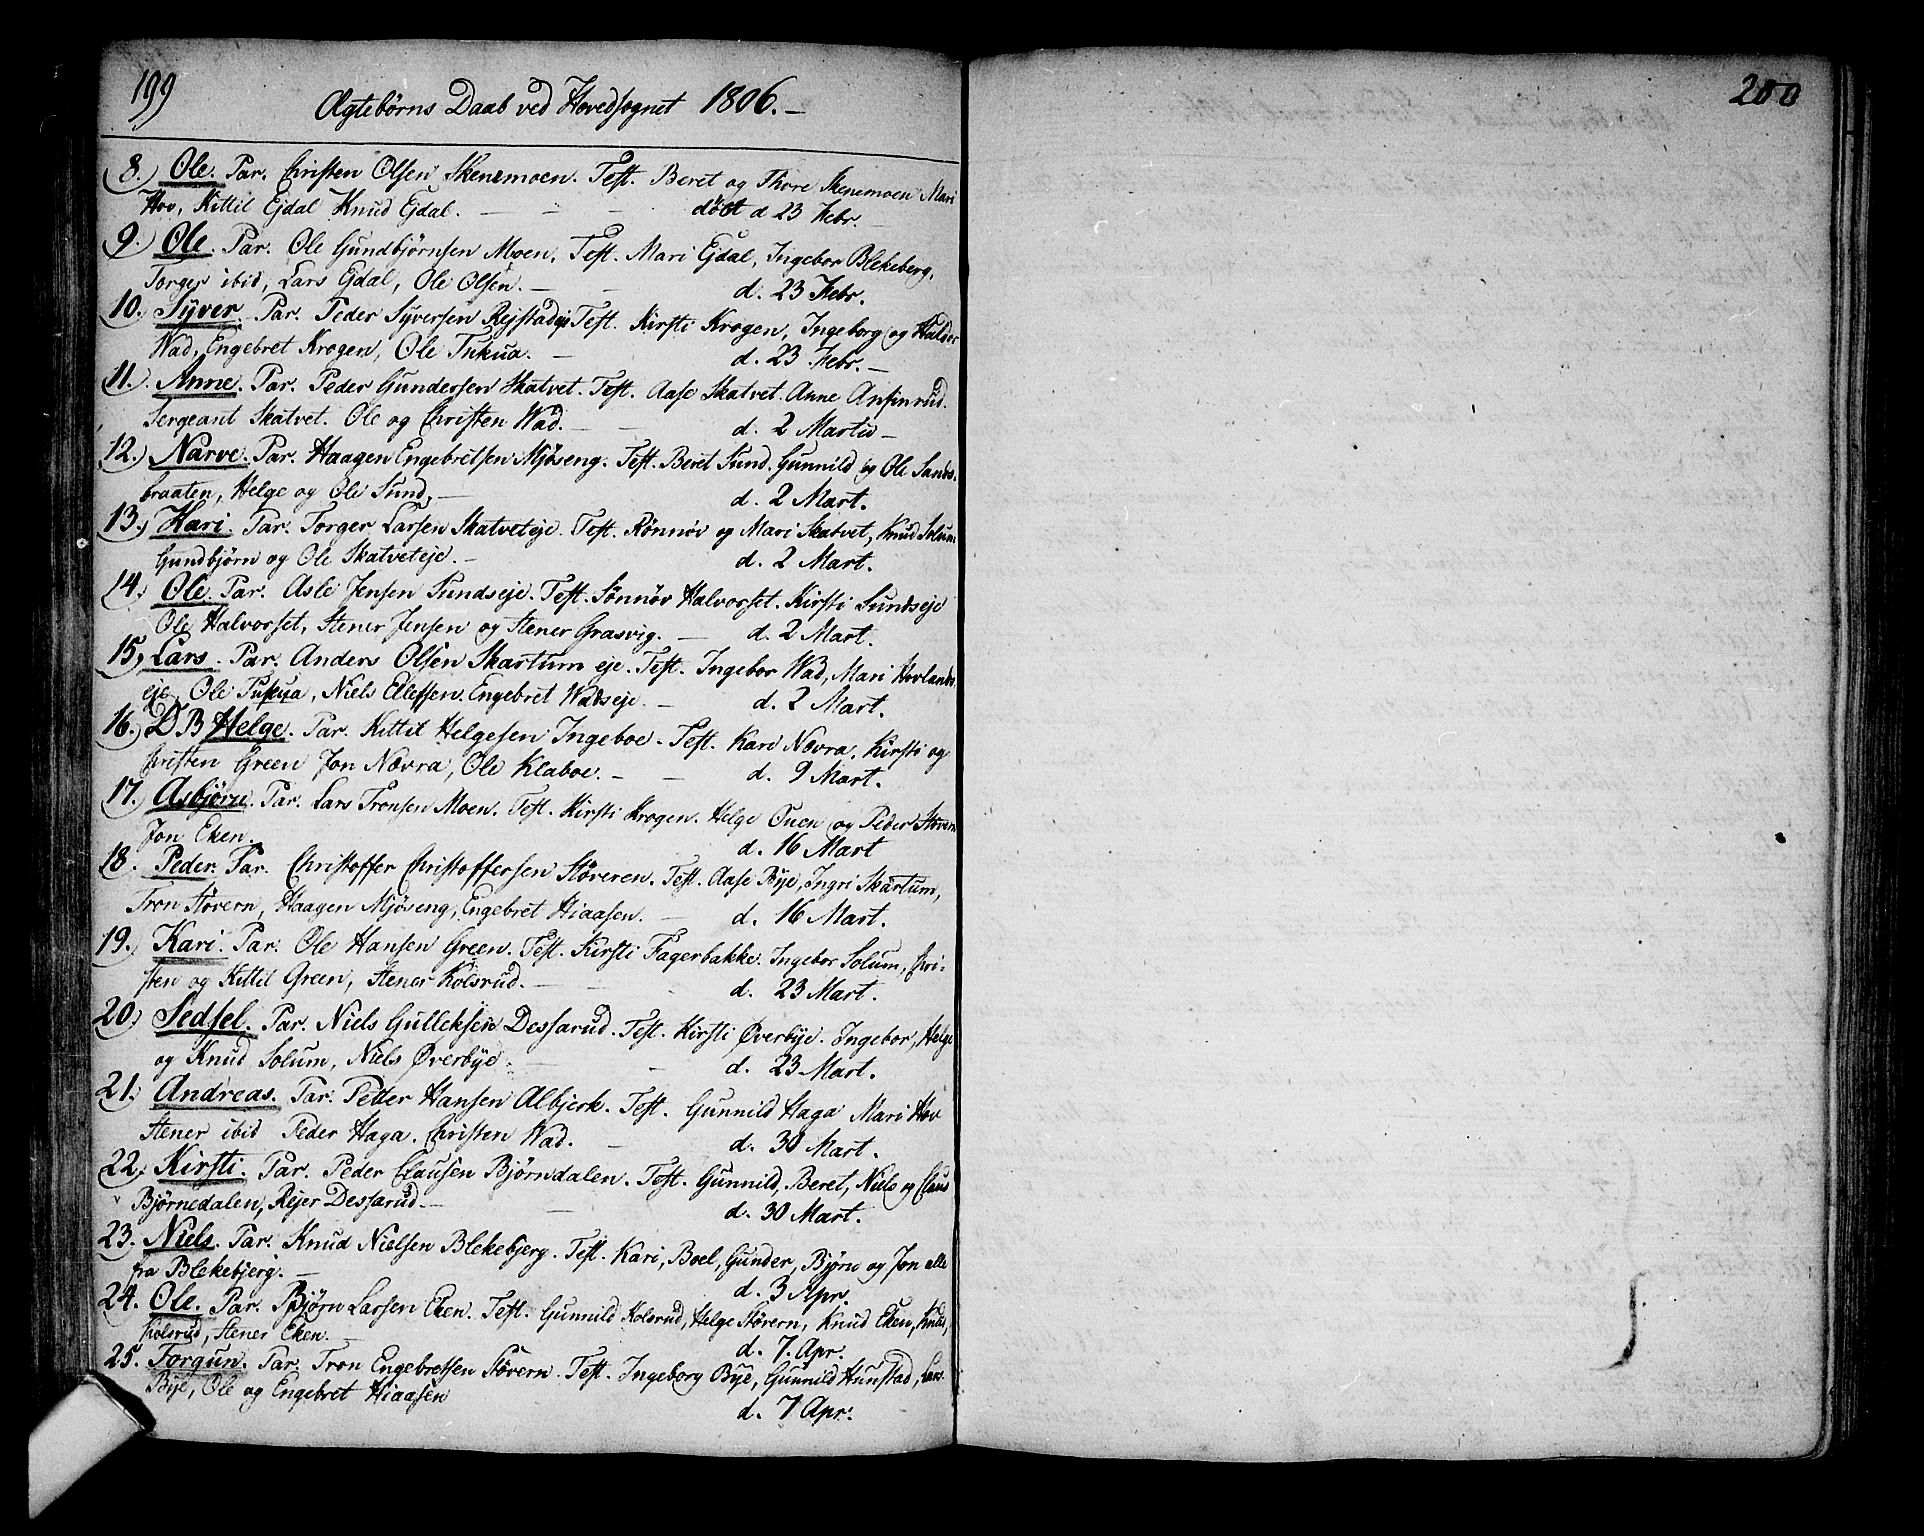 199
Ægtebörns Daab ved Hovedsognet 1806.
200
8.) Ole. Par. Christen Olsen Skenemoen. Test. Beret og Thore Skenemoen Mari
Hov, Kittil Ejdal Knud Ejdal. — döbt d 23 Febr.
9.) Ole. Par. Ole Gundbjörnsen Moen. Test. Mari Ejdal, Ingebor Blekeberg.
Torger ibid, Lars Ejdal, Ole Olsen. — d. 23 Febr.
10. Syver. Par. Peder Syversen Rejstadeje Test. Kirsti Krogen, Ingeborg og Halvor
Wad, Engebret Krogen, Ole Tukua. — d. 23 Febr. —
11.) Anne. Par. Peder Gundersen Skatvet. Test. Aase Skatvet. Anne Anfinrud.
Sergeant Skatvet. Ole og Christen Wad. — d. 2 Martii —
12.) Narve. Par. Haagen Engebretsen Mjöseng. Test. Beret Sund. Gunnild og Ole Sands-
braaten, Helge og Ole Sund, — d. 2 Mart.
13.) Kari. Par. Torger Larsen Skatveteje. Test. Rönnöv og Mari Skatvet, Knud Solum
Gundbjörn og Ole Skatveteje. — d. 2 Mart.
14.) Ole. Par. Asle Jensen Sundseje. Test. Sönnöv Halvorset. Kirsti Sundseje
Ole Halvorset, Stener Jensen og Stener Grasvig. — d. 2 Mart.
15.) Lars. Par. Anders Olsen Skartum eje. Test. Ingebor Wad, Mari Hovlands
eje, Ole Tukua, Niels Ellefsen. Engebret Wadseje. — d. 2 Mart.
16.) DB Helge. Par. Kittil Helgesen Ingeboe. Test. Kari Nævra, Kirsti og
Christen Green Jon Nævra, Ole Klaboe. — d. 9 Mart.
17.) Asbjörn. Par. Lars Tronsen Moen. Test. Kirsti Krogen. Helge Ouen og Peder Stövern
Jon Eken. d. 16 Mart
18. Peder. Par. Christoffer Christoffersen Störeren. Test. Aase Bye, Ingri Skartum,
Tron Stövern, Haagen Mjöseng, Engebret Hiaasen. — d. 16 Mart.
19.) Kari. Par. Ole Hansen Green. Test. Kirsti Fagerbakke. Ingebor Solum, Chri-
sten og Kittil Green, Stener Kolsrud. — d. 23 Mart.
20.) Sedsel. Par. Niels Gulleksen Dessarud. Test. Kirsti Øverbye. Ingebor, Helge
og Knud Solum, Niels Øverbye. — d. 23 Mart.
21.) Andreas. Par. Peder Hansen Albjerk. Test. Gunnild Haga Mari Hov
Stener ibid Peder Haga. Christen Wad. — d. 30 Mart.
22.) Kirsti. Par. Peder Clausen Björndalen. Test. Gunnild, Beret, Niels og Claus
Björnedalen, Rejer Dessarud. — d. 30 Mart.
23. Niels. Par. Knud Nielsen Blekebjerg. Test. Kari, Boel, Gunder, Björn og Jon alle
fra Blekebjerg. — d. 3 Apr.
24. Ole. Par. Björn Larsen Eken. Test. Gunnild Kolsrud, Helge Stövern, Knud Eken,
Kolsrud, Stener Eken. — d. 7. Apr.
25. Torgun. Par. Tron Engebretsen Stövern. Test. Ingeborg Bye, Gunnild Hunstad, Lars
Bye, Ole og Engebret Hiaasen d. 7 Apr.